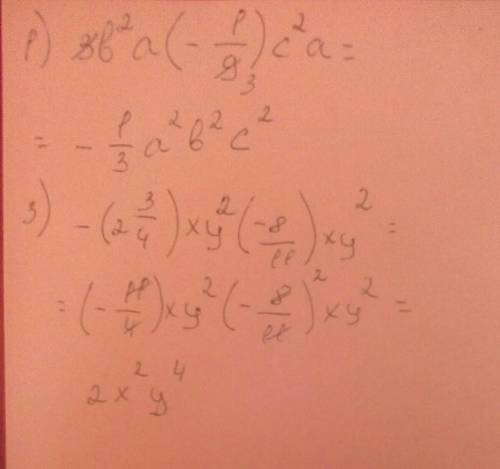 1) 3b²a(-1/9 3)c²a =
= -1/3 a²b²c²
3) -(2 3/4)xy²(-8/11)xy² =
= (-11/4)xy²(-8/11)²xy² =
2x²y⁴